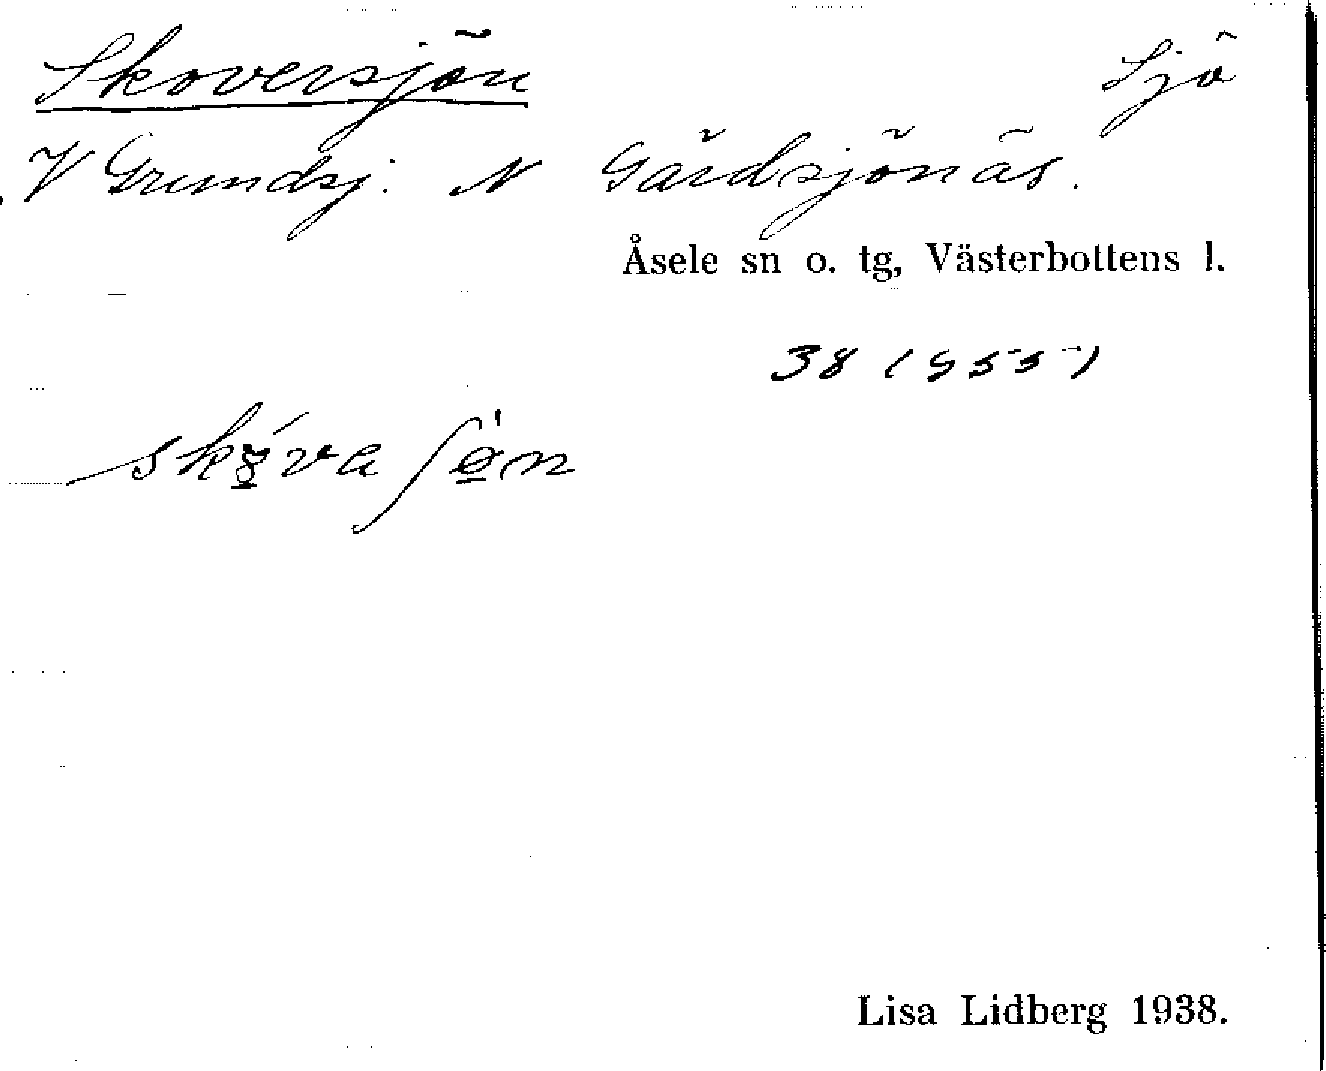 Skoversjön Sjö
V Grundsj. N Gårdsjönäs.
Åsele sn o. tg, Västerbottens l.
38 (955)
Lisa Lidberg 1938.